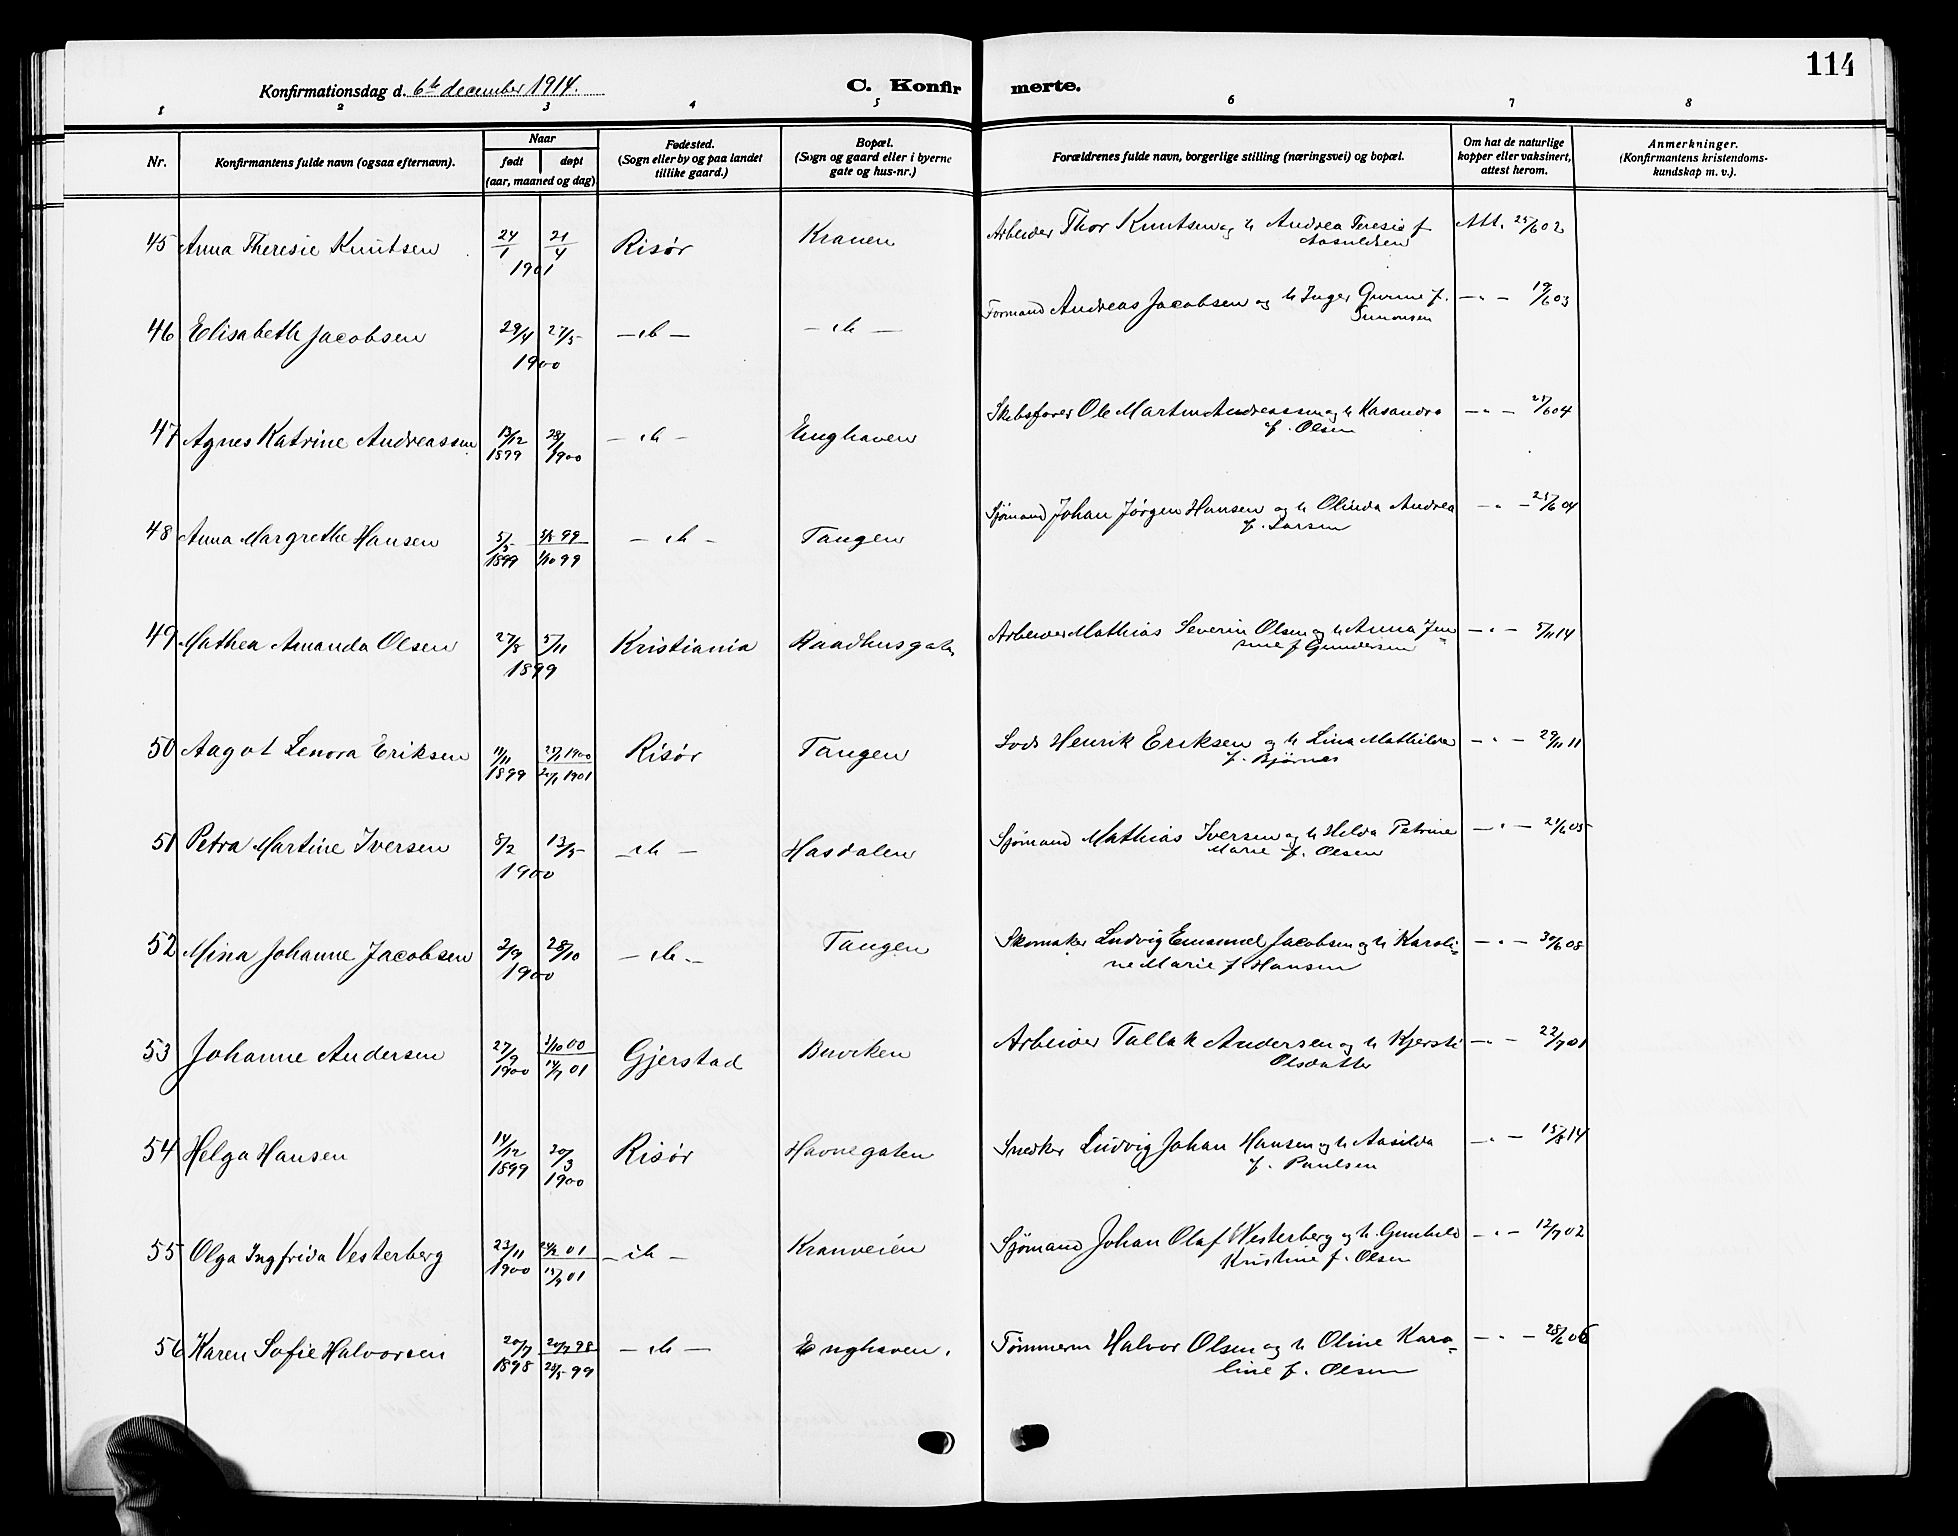 114
Konfirmationsdag d. 6te december 1914.
C. Konfir merte.
1 2 3 4 5 6 7 8
Nr.
Konfirmantens fulde navn (ogsaa efternavn).
Naar
født døpt
(aar, maaned og dag)
Fødested.
(Sogn eller by og paa landet
tillike gaard.)
Bopæl.
(Sogn og gaard eller i byerne
gate og hus-nr.)
Forældrenes fulde navn, borgerlige stilling (næringsvei) og bopæl.
Om hat de naturlige
kopper eller vaksinert,
attest herom.
Anmerkninger.
(Konfirmantens kristendoms-
kundskap m. v.).
45 Anna Theresie Knutsen 24/1 21/4 Risør Kranen Arbeider Thor Knutsen og h Andrea Teresie f Att. 25/6 02
1901 Aasuldsen
46 Elisabeth Jacobsen 29/4 27/5 — do — — do — Formand Andreas Jacobsen og h Inger Gurine f. — " — 19/6 03
1900 Simonsen
47 Agnes Katrine Andreassen 13/12 28/1 — do — Enghaven Skibsfører Ole Martin Andreassen og h Kasandra — " —
1899 1900 f. Olsen
48 Anna Margrethe Hansen 5/5 — do — Tangen Sjømand Johan Jørgen Hansen og h Olinda Andrea — " —
1899 1/10 99 f. Larsen
49 Mathea Amanda Olsen 27/8 5/11 Kristiania Raadhusgaten Arbeider Mathias Severin Olsen og h Anna Jen — " — 5/11 14
1899 sine f Gundersen
50 Aagot Lenora Eriksen 11/11 Risør Tangen Lods Henrik Eriksen og h Lina Mathilde — " — 29/11 11
1899 f. Bjørnes
51 Petra Martine Iversen 8/2 13/5 — do — Hasdalen Sjømand Mathias Iversen og h Helda Petrine — " —
1900 Marie f. Olsen
52 Mina Johanne Jacobsen 2/9 28/10 — do — Tangen Skomaker Ludvig Emanuel Jacobsen og h Karoli= — " — 30/6 08
1900 ne Marie f Hansen
53 Johanne Andersen 27/9 3/10 00 Gjerstad Buviken Arbeider Tallak Andersen og h Kjersti — " — 22/7 01
1900 14/7 01 Olsdatter
54 Helga Hansen 14/12 20/3 Risør Havnegaten Snedker Ludvig Johan Hansen og h Aasilda — " — 15/8 14
1899 1900 f. Paulsen
55 Olga Ingfrida Vesterberg 23/11 24/2 01 — do — Kranveien Sjømand Johan Olaf Westerberg og h Gunhild — " — 12/7 02
1900 Kristine f. Olsen
56 Karen Sofie Halvorsen 20/7 20/7 98 — do — Enghaven. Tømmerm Halvor Olsen og h Oline Karo= — " — 28/6 06
1898 line f. Olsen